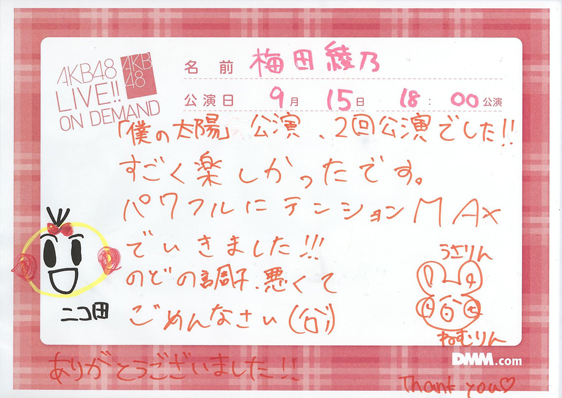 AKB48
LIVE!!
ON DEMAND
AKB
48
名前 梅田綾乃
公演日 9月 15日 18:00公演
「僕の太陽」公演、2回公演でした!!
すごく楽しかったです。
パワフルにテンションMAX
でいきました!!!
のどの調子、悪くて
ごめんなさい
ニコ田
うさりん
ねむりん
DMM.com
ありがとうございました!!
Thank you♡